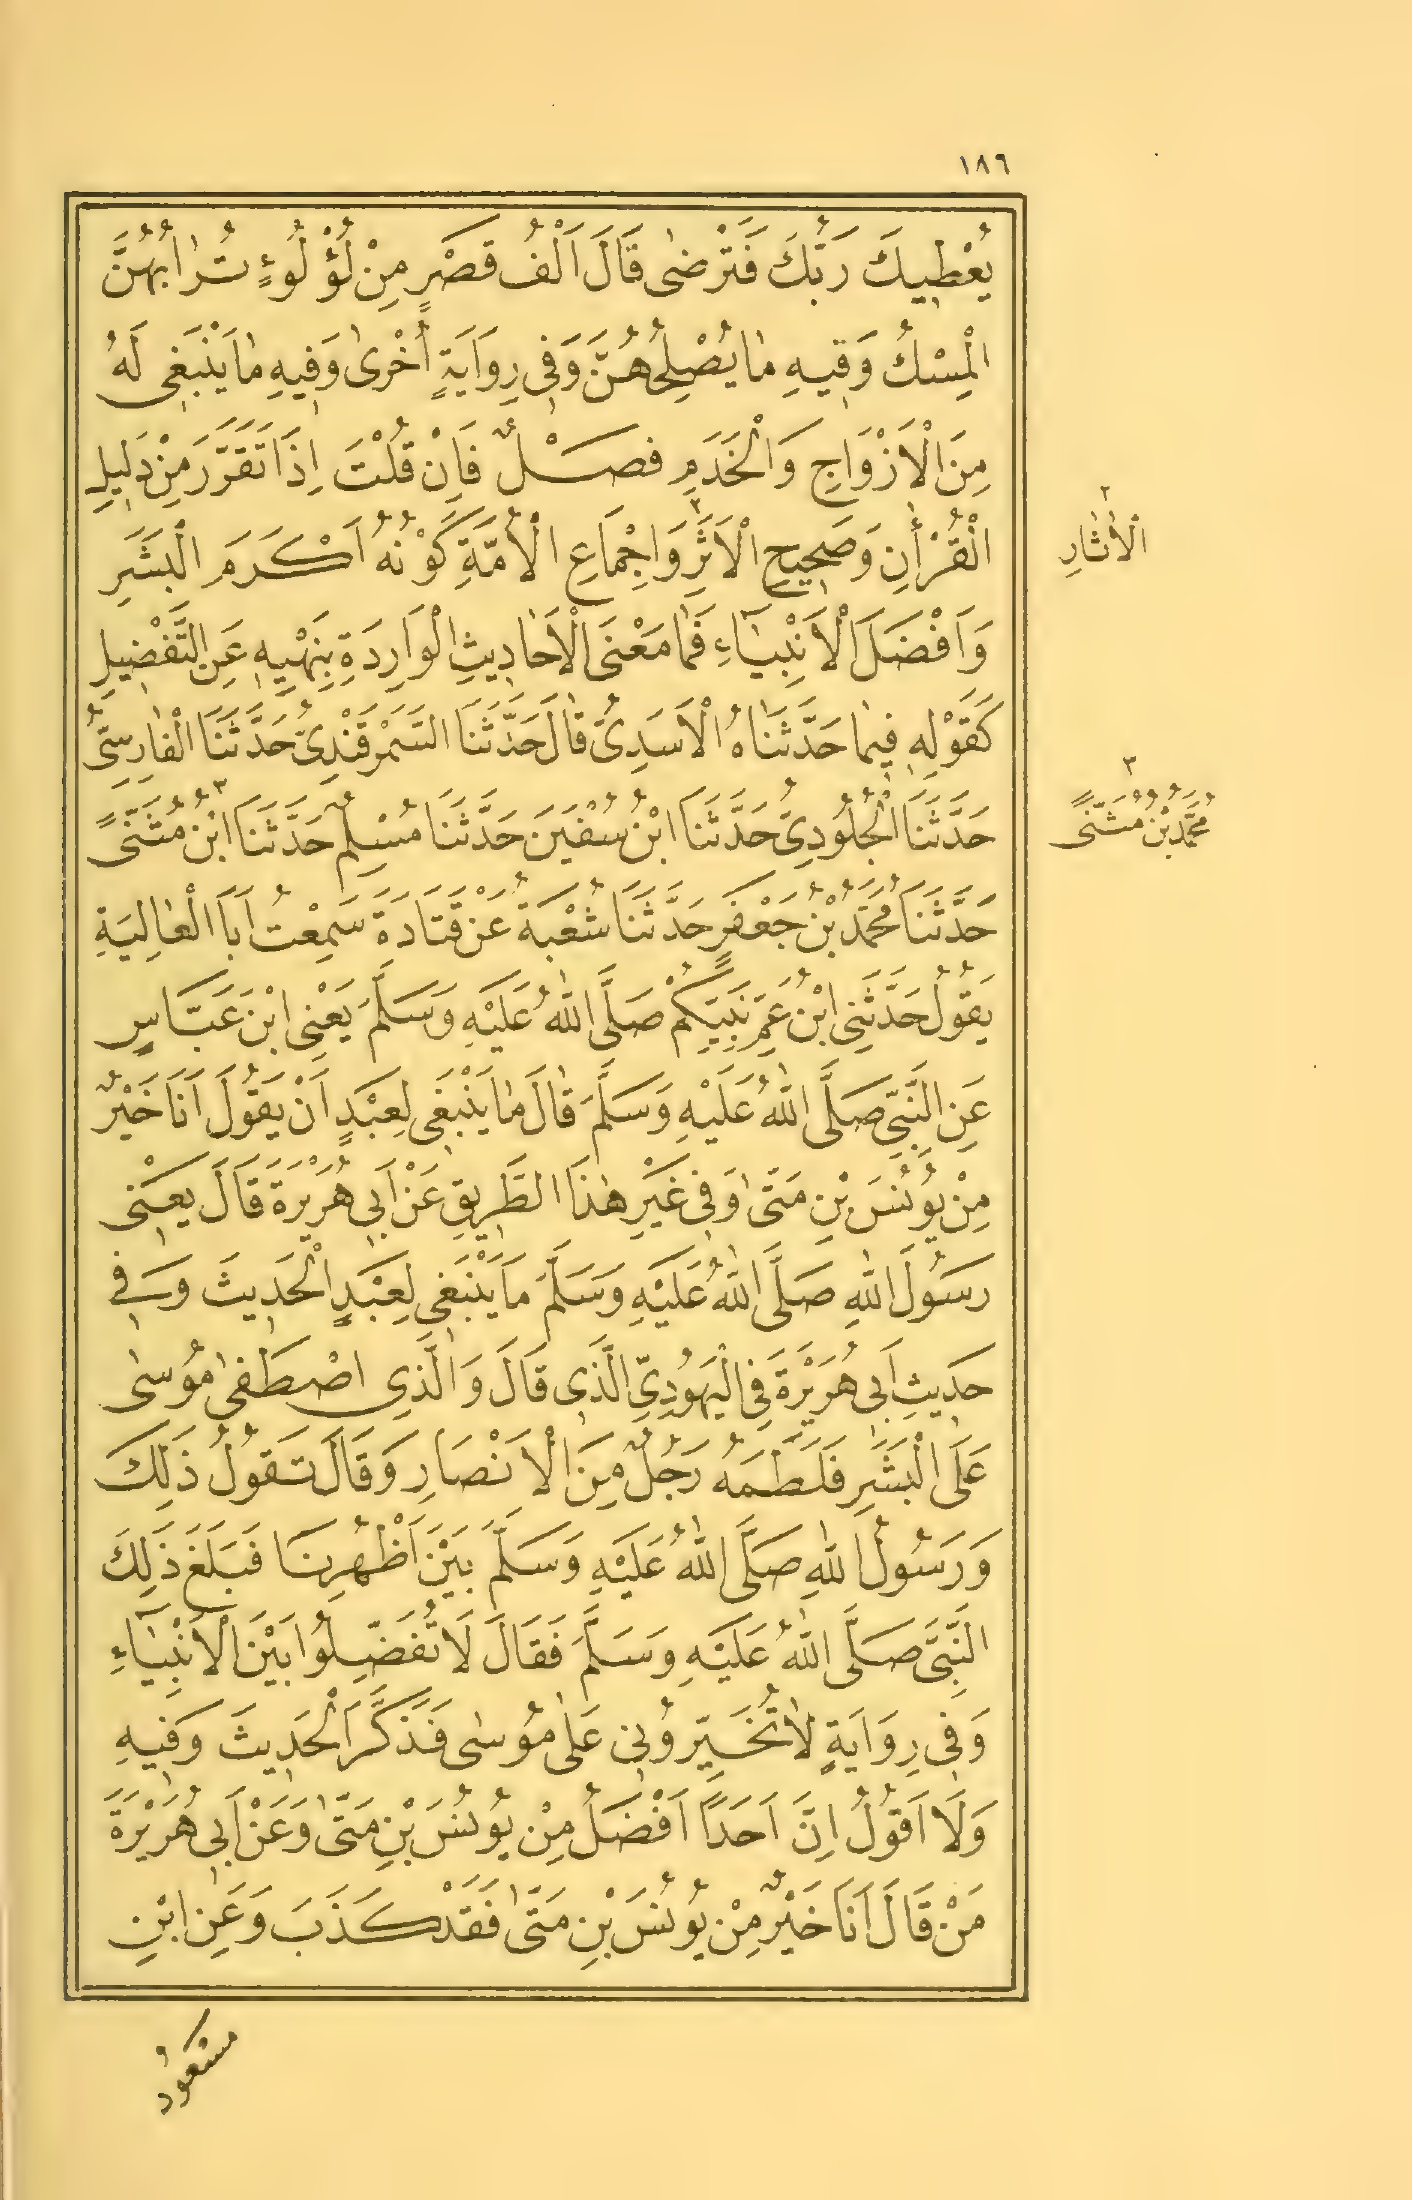 ١٨٦
يُعْطِيكَ رَبُّكَ فَتَرْضٰى قَالَ اَلْفُ قَصْرٍ مِنْ لُؤْلُوءٍ تُرَابُهُنَّ
الْمِسْكُ وَفِيهِ مَا يُصْلِحُهُنَّ وَفِي رِوَايَةٍ أُخْرٰى وَفِيهِ مَا يَنْبَغِي لَهُ
مِنَ الْاَزْوَاجِ وَالْخَدَمِ فَصْلٌ فَاِنْ قُلْتَ اِذَا تَقَرَّرَ مِنْ دَلِيلِ
الْقُرْاٰنِ وَصَحِيحِ الْاَثَرِ٢ وَاِجْمَاعِ الْاُمَّةِ كَوْنُهُ اَكْرَمَ الْبَشَرِ
وَاَفْضَلَ الْاَنْبِيَآءِ فَمَا مَعْنَى الْاَحَادِيثِ الْوَارِدَةِ بِنَهْيِهِ عَنِ التَّفْضِيلِ
كَقَوْلِهِ فِيمَا حَدَّثَنَاهُ الْاَسَدِىُّ قَالَ حَدَّثَنَا السَّمَرْقَنْدِىُّ حَدَّثَنَا الْفَارِسِىُّ
حَدَّثَنَا الْجُلُودِىُّ حَدَّثَنَا ابْنُ سُفْيٰنَ حَدَّثَنَا مُسْلِمٌ حَدَّثَنَا ابْنُ٣ مُثَنًّى
حَدَّثَنَا مُحَمَّدُ بْنُ جَعْفَرٍ حَدَّثَنَا شُعْبَةُ عَنْ قَتَادَةَ سَمِعْتُ اَبَا الْعَالِيَةِ
يَقُولُ حَدَّثَنِى ابْنُ عَمِّ نَبِيِّكُمْ صَلَّى اللّٰهُ عَلَيْهِ وَسَلَّمَ يَعْنِى ابْنَ عَبَّاسٍ
عَنِ النَّبِىِّ صَلَّى اللّٰهُ عَلَيْهِ وَسَلَّمَ قَالَ مَا يَنْبَغِى لِعَبْدٍ اَنْ يَقُولَ اَنَا خَيْرٌ
مِنْ يُونُسَ بْنِ مَتّٰى وَفِى غَيْرِ هٰذَا الطَّرِيقِ عَنْ اَبِى هُرَيْرَةَ قَالَ يَعْنِى
رَسُولَ اللّٰهِ صَلَّى اللّٰهُ عَلَيْهِ وَسَلَّمَ مَا يَنْبَغِى لِعَبْدٍ الْحَدِيثَ وَفِى
حَدِيثِ اَبِى هُرَيْرَةَ فِى الْيَهُودِىِّ الَّذِى قَالَ وَالَّذِى اصْطَفٰى مُوسٰى
عَلَى الْبَشَرِ فَلَطَمَهُ رَجُلٌ مِنَ الْاَنْصَارِ وَقَالَ تَقُولُ ذَلِكَ
وَرَسُولُ اللّٰهِ صَلَّى اللّٰهُ عَلَيْهِ وَسَلَّمَ بَيْنَ اَظْهُرِنَا فَبَلَغَ ذَلِكَ
النَّبِىَّ صَلَّى اللّٰهُ عَلَيْهِ وَسَلَّمَ فَقَالَ لَا تُفَضِّلُوا بَيْنَ الْاَنْبِيَآءِ
وَفِى رِوَايَةٍ لَا تُخَيِّرُونِى عَلٰى مُوسٰى فَذَكَرَ الْحَدِيثَ وَفِيهِ
وَلَا اَقُولُ اِنَّ اَحَدًا اَفْضَلُ مِنْ يُونُسَ بْنِ مَتّٰى وَعَنْ اَبِى هُرَيْرَةَ
مَنْ قَالَ اَنَا خَيْرٌ مِنْ يُونُسَ بْنِ مَتّٰى فَقَدْ كَذَبَ وَعَنِ ابْنِ
مسعود
٢
الْاٰثَارِ
٣
مُحَمَّدُ بْنُ مُثَنًّى